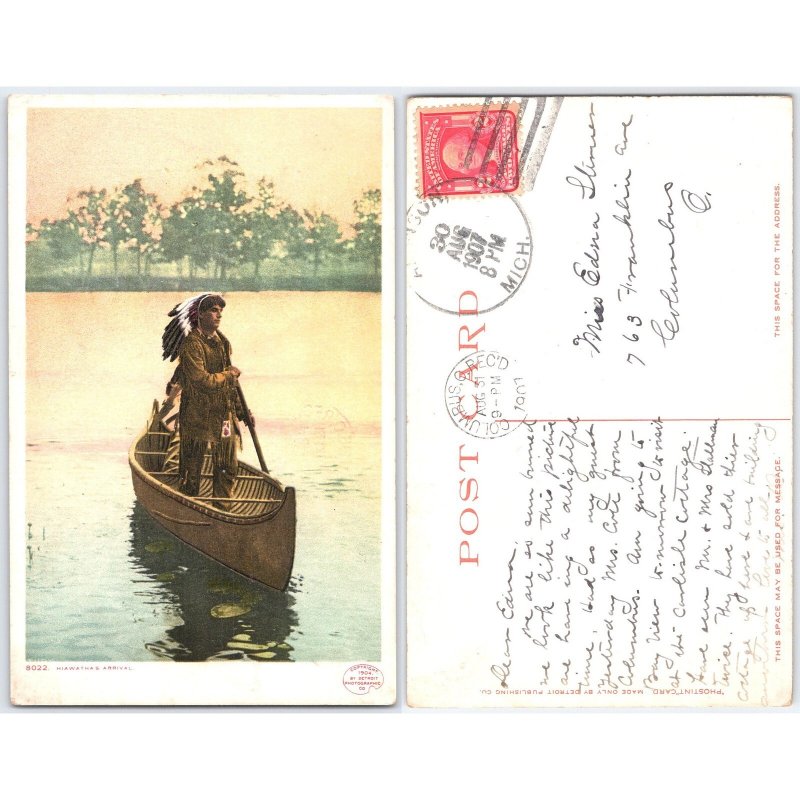 8022. HIAWATHA'S ARRIVAL.
COPYRIGHT
1904
BY DETROIT
PHOTOGRAPHIC
CO
UNITED STATES
OF AMERICA
30
AUG
1907
8 PM
MICH.
POST CARD
COLUMBUS, O. REC'D
AUG 31
9-PM
1907
Miss Edna
763 Franklin ave
Columbus
O.
THIS SPACE FOR THE ADDRESS.
Dear Edna,
we are so sun burned
we look like this picture
are having a delightful
time, Had as my guest
yesterday Mrs. Cole from
Columbus. Am going to
Bay View to-morrow to visit
at the Carlisle Cottage.
Have seen Mr. & Mrs
twice. They have sold their
cottage up here & are building
Love to all
THIS SPACE MAY BE USED FOR MESSAGE.
"PHOSTINT" CARD MADE ONLY BY DETROIT PUBLISHING CO.